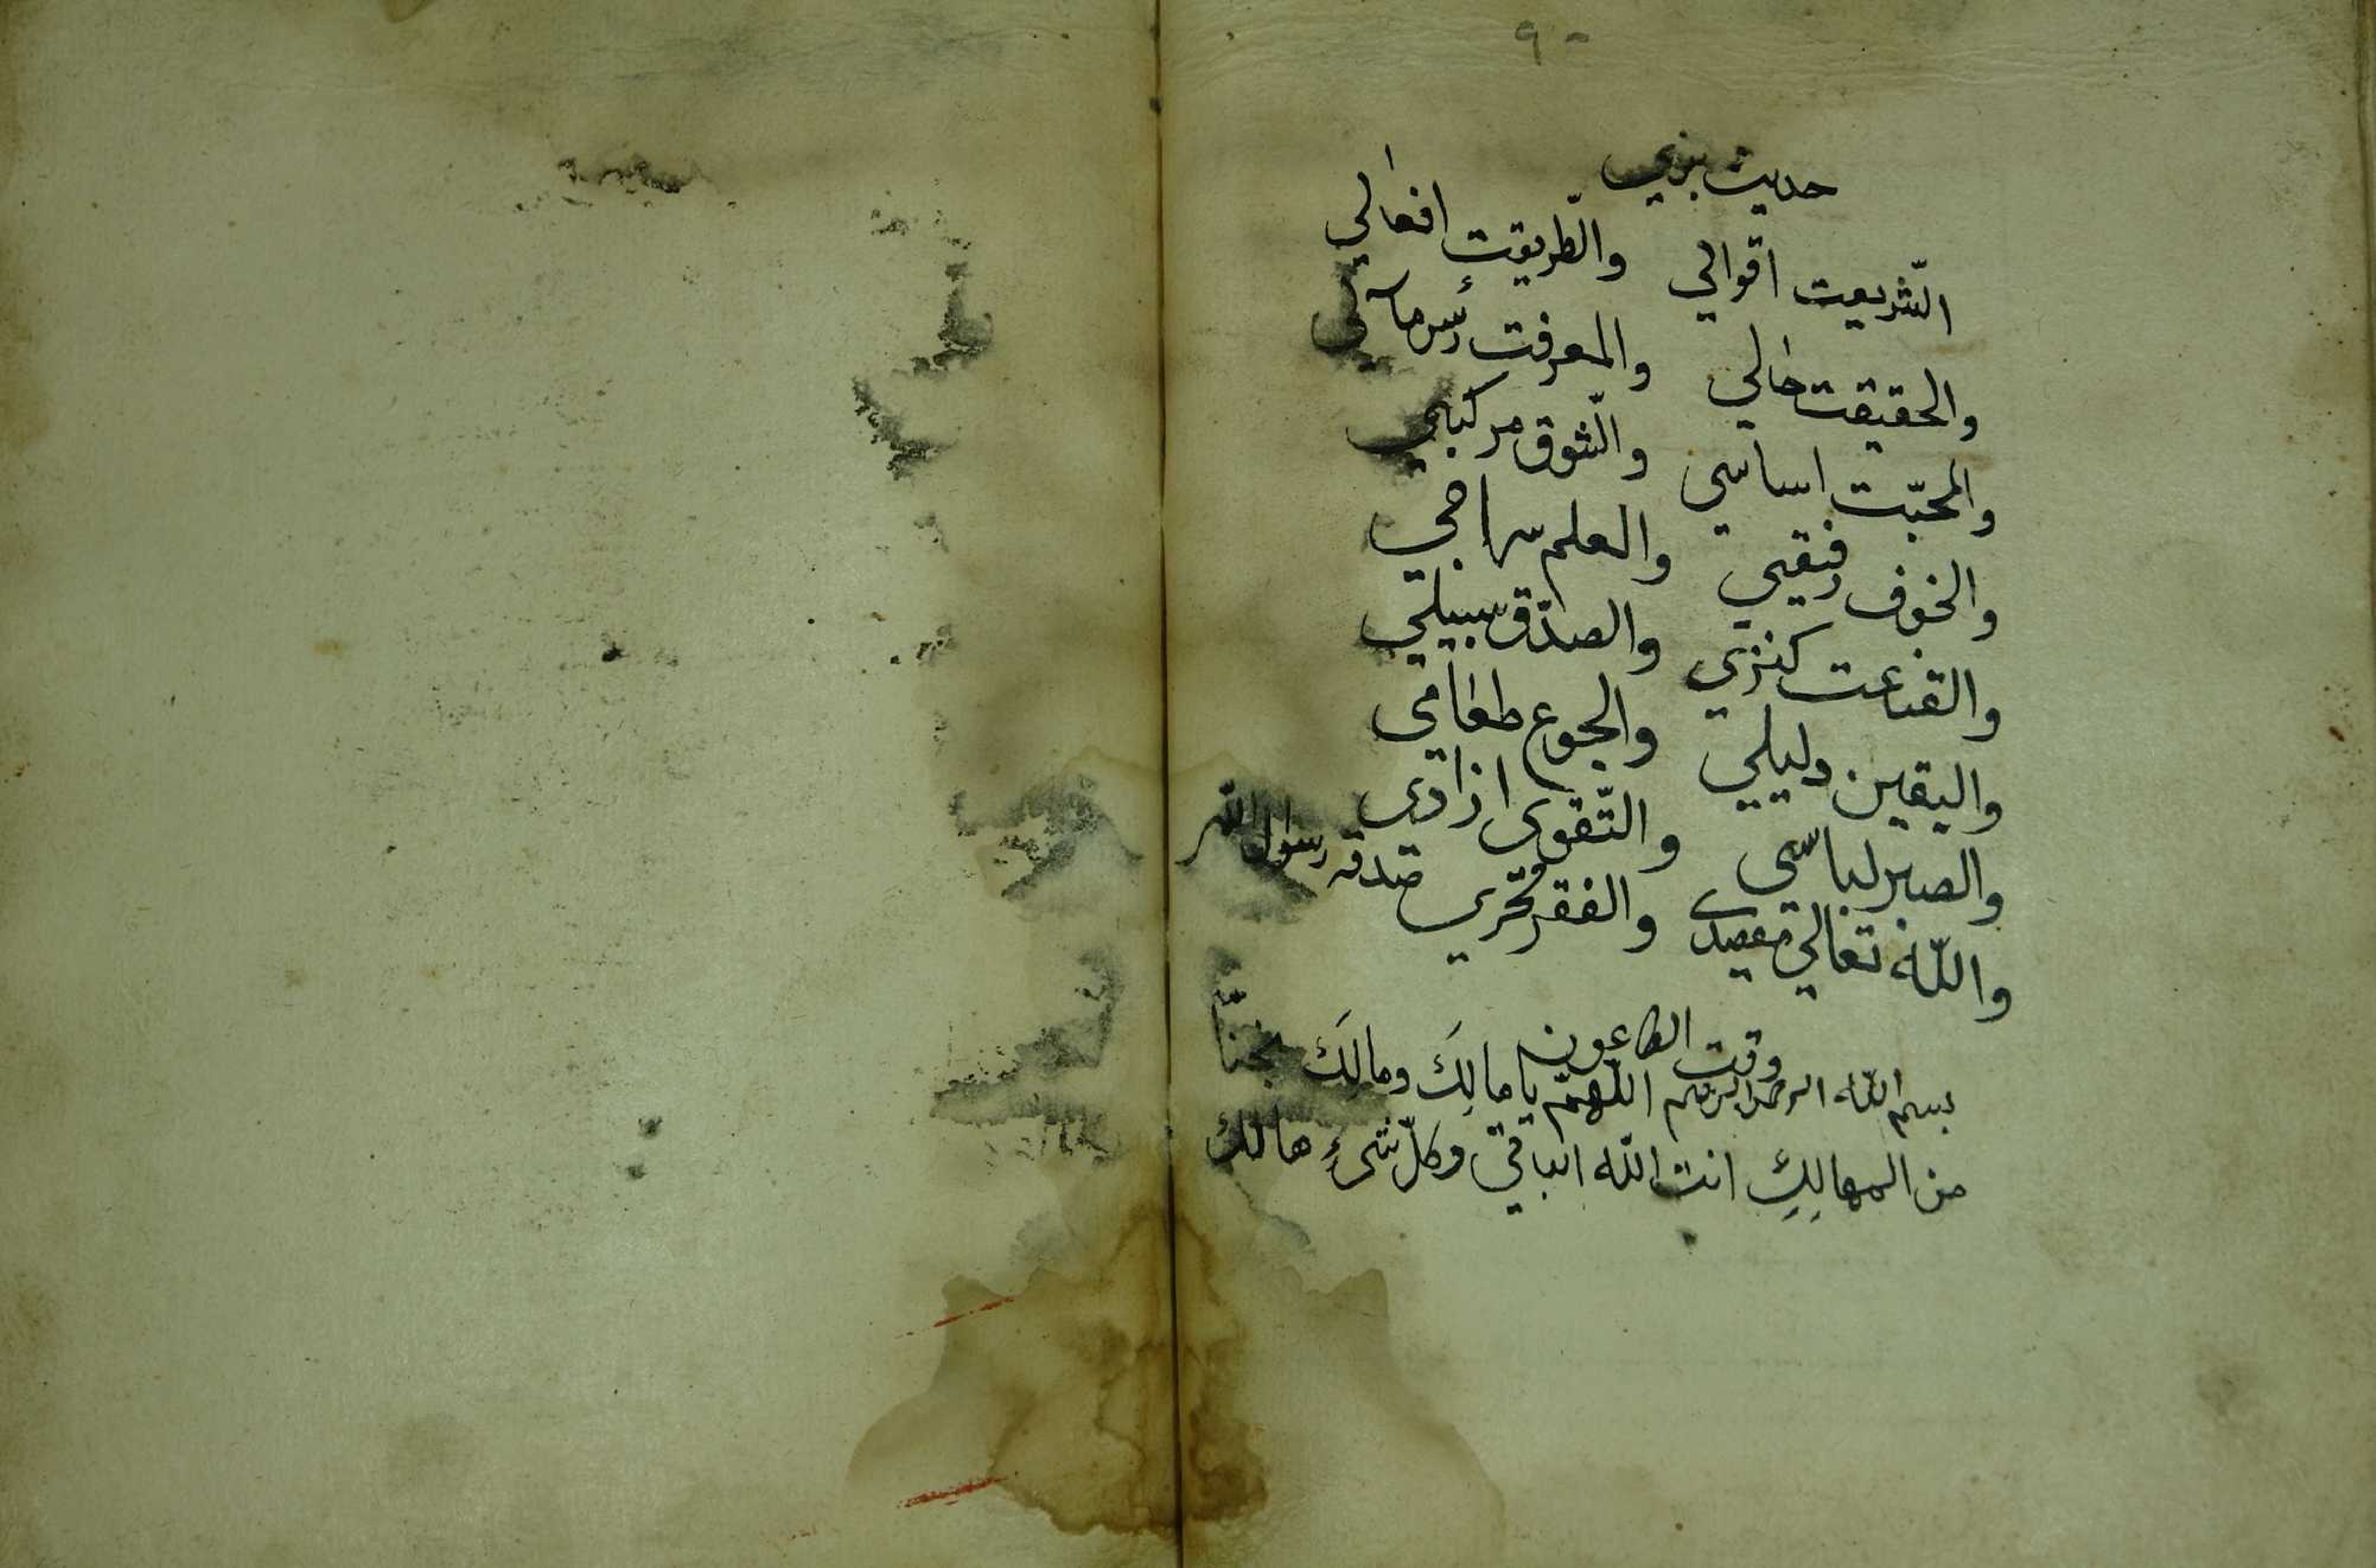 ٩٠
حديث
الشّريعت اقوالي والطّريقت افعالي
والحقيقت حالي والمعرفت رأس مالي
والمحبّت اساسي والشّوق مركبي
والخوف رفيقي والعلم سلاحي
والقناعت كنزي والصدّق سبيلي
واليقين دليلي والجوع طعامي
والصبر لباسي والتّقوى ازادى
والله تعالي مقصدى والفقر فخري صدقه رسول الله
وقت الطاعون
بسم الله الرحمن الرحيم اللّهمّ يا مالِكَ ومالِكَ نجنّا
من المهالِكِ انت الله الباقي وكلّ شىءٍ هالك